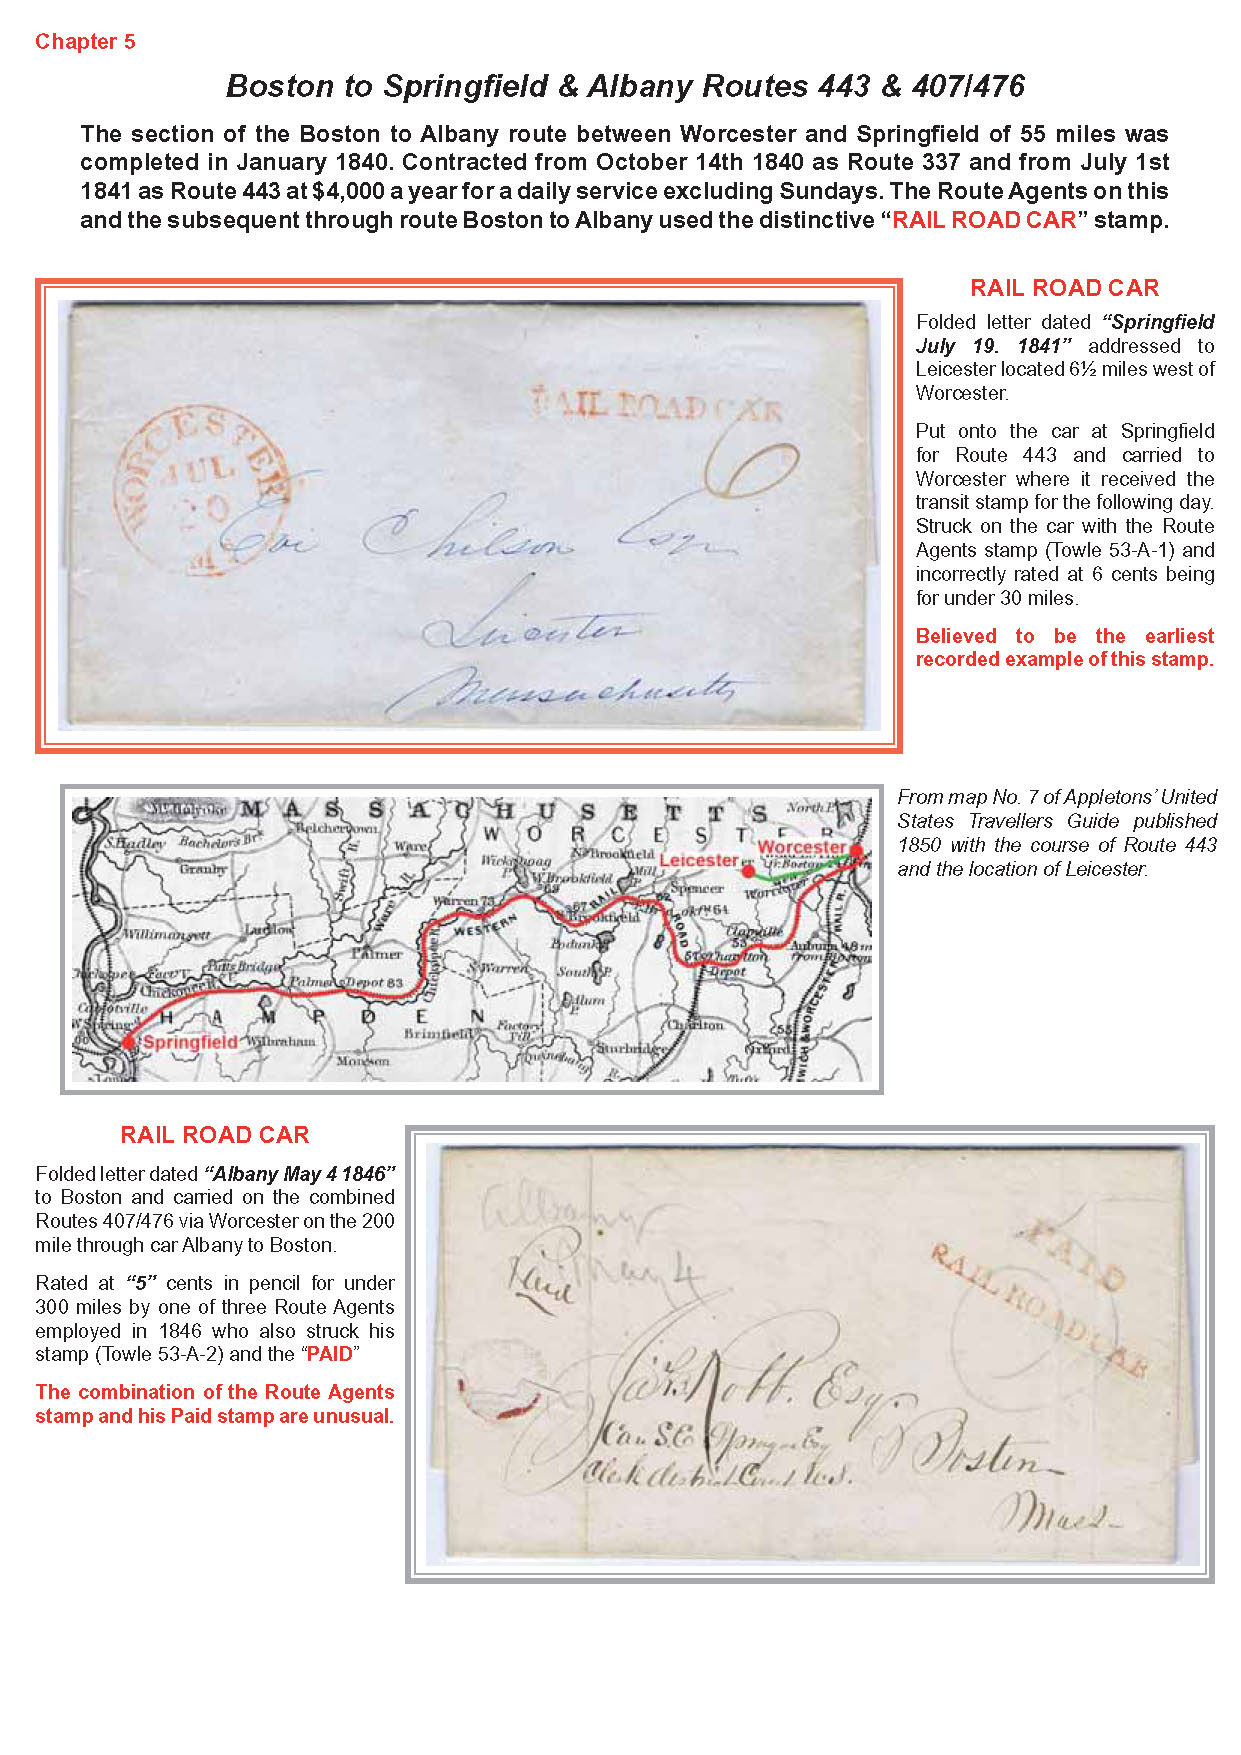 Chapter 5
Boston to Springfield & Albany Routes 443 & 407/476
The section of the Boston to Albany route between Worcester and Springfield of 55 miles was
completed in January 1840. Contracted from October 14th 1840 as Route 337 and from July 1st
1841 as Route 443 at $4,000 a year for a daily service excluding Sundays. The Route Agents on this
and the subsequent through route Boston to Albany used the distinctive “RAIL ROAD CAR” stamp.
WORCESTER
JUL
20
MS
RAIL ROAD CAR
6
Chilson Esq
Leicester
Massachusetts
RAIL ROAD CAR
Folded letter dated “Springfield
July 19. 1841” addressed to
Leicester located 6½ miles west of
Worcester.
Put onto the car at Springfield
for Route 443 and carried to
Worcester where it received the
transit stamp for the following day.
Struck on the car with the Route
Agents stamp (Towle 53-A-1) and
incorrectly rated at 6 cents being
for under 30 miles.
Believed to be the earliest
recorded example of this stamp.
Mt. Holyoke
MASSACHUSETTS
North P.
WORCESTER
S. Hadley
Bachelor's Br.
Belchertown
Ware
Granby
Swift R.
Ware R.
Wickaboag P.
N. Brookfield
W. Brookfield
69
Leicester
Worcester
Spencer
Warren 73
WESTERN
67
RAIL
ROAD
Brookfield
62
64
Clapville
53
Auburn 48 m
from Boston
Willimansett
Ludlow
Palmer
Podunk
S. Warren
South P.
Charlton
Depot
Putts Bridge
Chickopee R.
Palmer Depot 83
Cabotville
HAMPDEN
Alum P.
Springfield
Wilbraham
Monson
Brimfield
Factory Vill.
Sturbridge
Charlton
Oxford
From map No. 7 of Appletons’ United
States Travellers Guide published
1850 with the course of Route 443
and the location of Leicester.
RAIL ROAD CAR
Folded letter dated “Albany May 4 1846”
to Boston and carried on the combined
Routes 407/476 via Worcester on the 200
mile through car Albany to Boston.
Rated at “5” cents in pencil for under
300 miles by one of three Route Agents
employed in 1846 who also struck his
stamp (Towle 53-A-2) and the “PAID”
The combination of the Route Agents
stamp and his Paid stamp are unusual.
Albany
May 4
Paid
PAID
RAIL ROAD CAR
Robb. Esq.
Care S.E. Sprague Esq
Clerk district Court U.S.
Boston
Mass